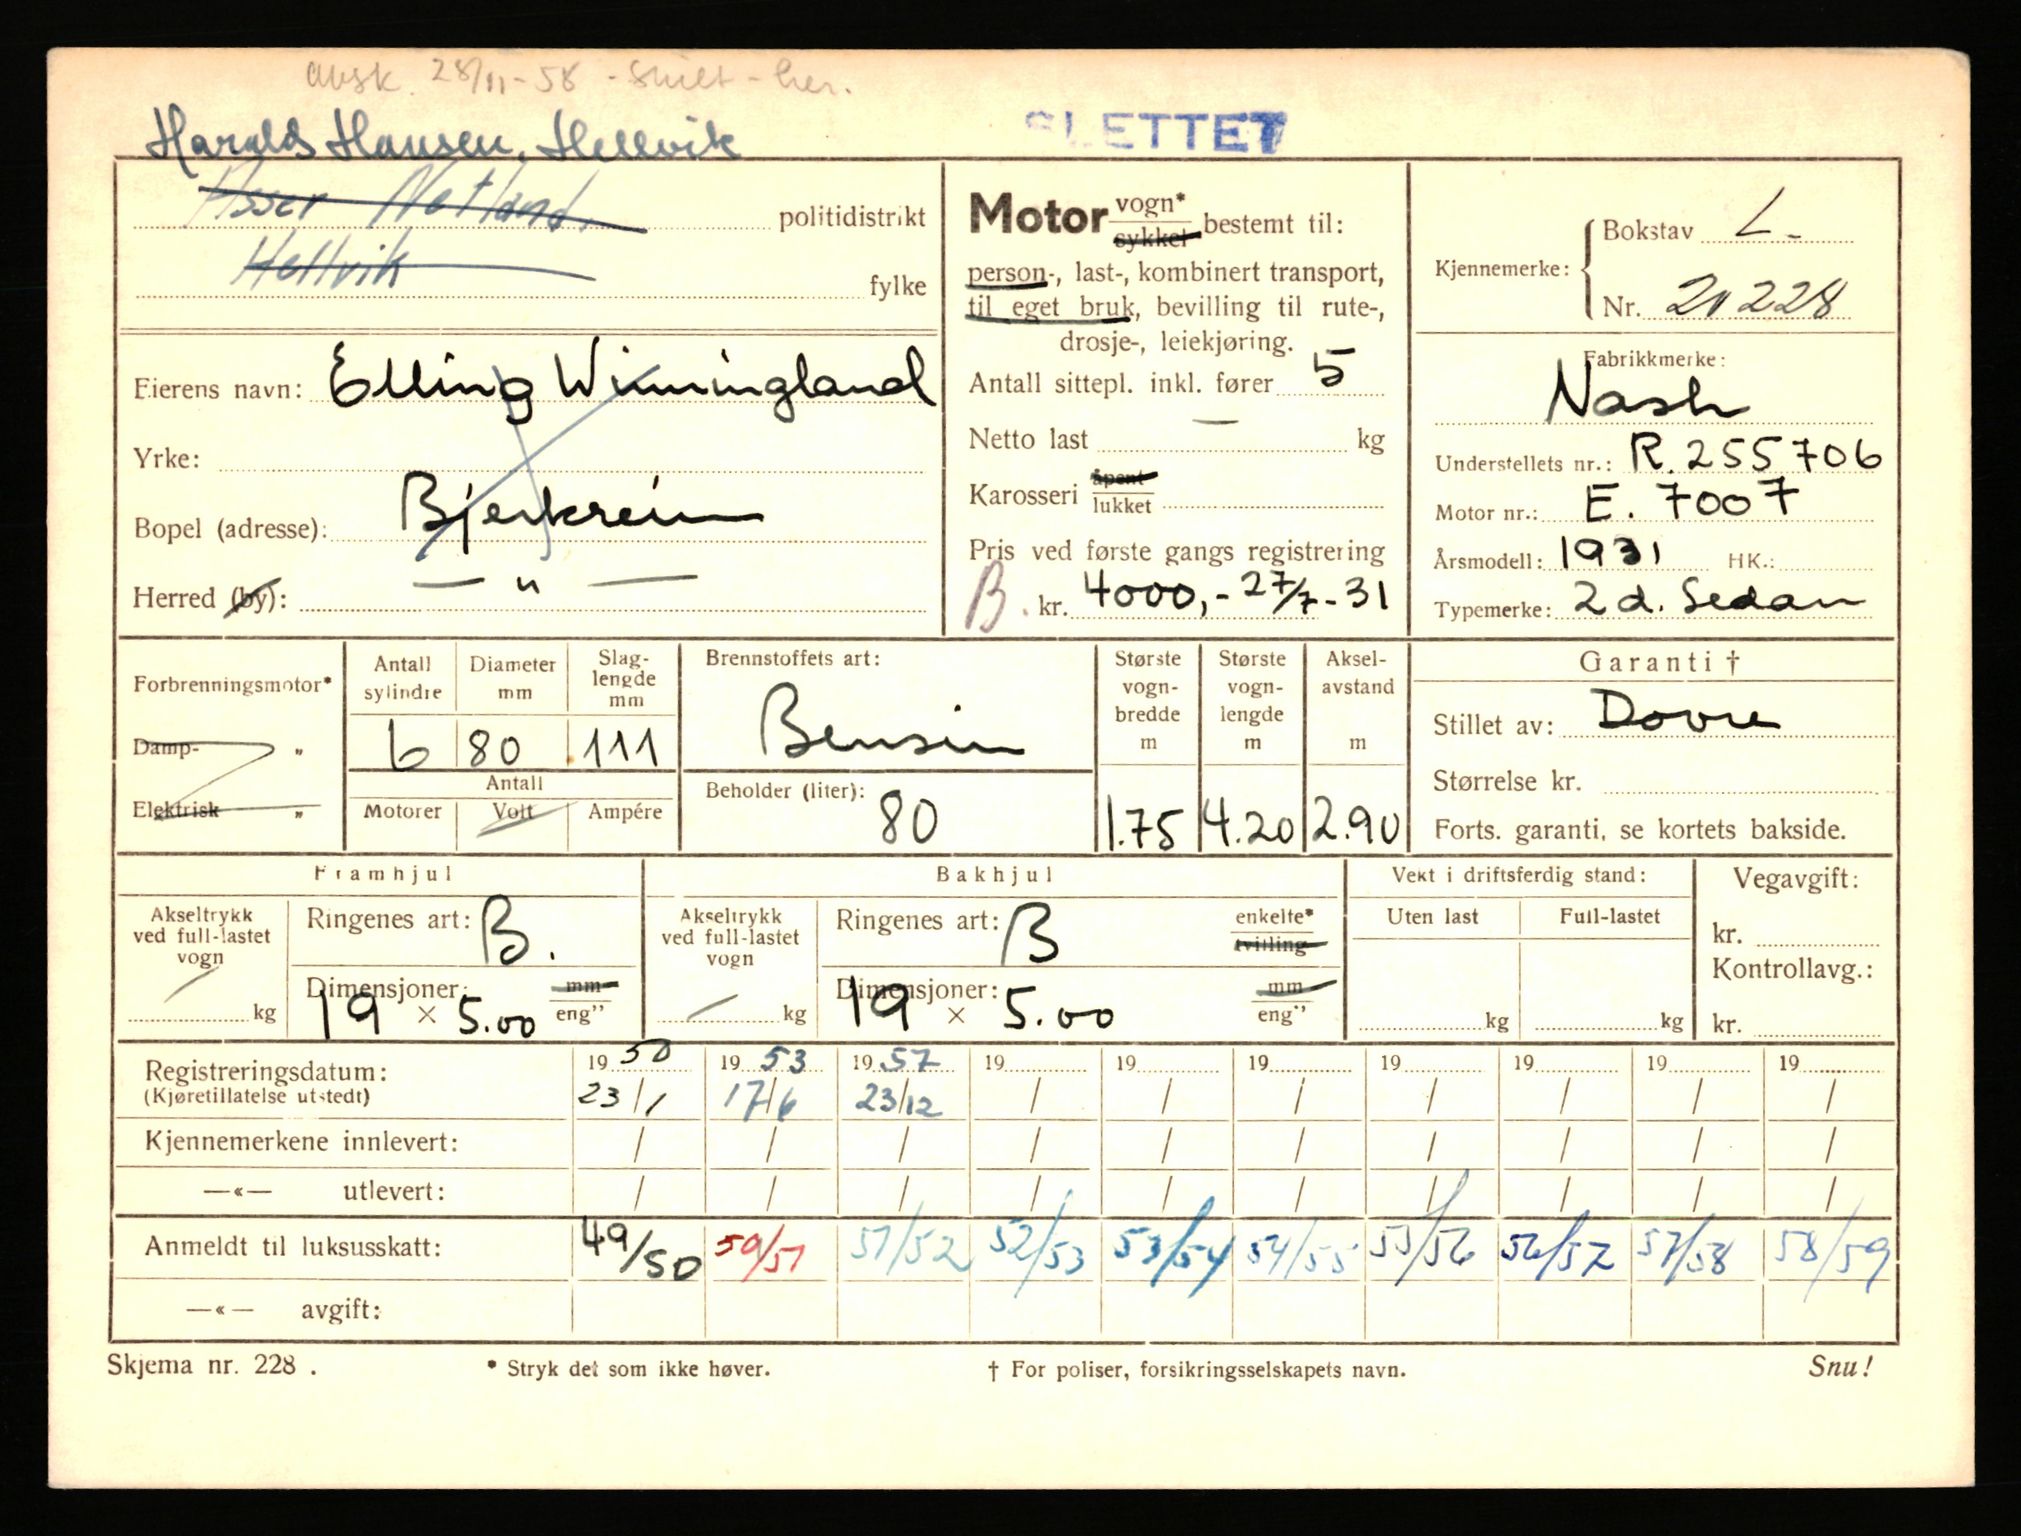 avsk. 28/11-58 - skilt - her.
Harald Hansen, Hellvik
SLETTET
Asser Netland, politidistrikt
Hellvik fylke
Eierens navn: Elling Winningland
Yrke:
Bopel (adresse): Bjerkreim
Herred (by): — " —
Motor vogn* sykkel bestemt til:
person-, last-, kombinert transport,
til eget bruk, bevilling til rute-,
drosje-, leiekjøring.
Antall sittepl. inkl. fører 5
Netto last — kg
Karosseri åpent lukket
Pris ved første gangs registrering
B. kr. 4000,- 27/7-31
Kjennemerke: Bokstav L-
Nr. 20228
Fabrikkmerke:
Nash
Understellets nr.: R. 255706
Motor nr.: E. 7007
Årsmodell: 1931 HK.:
Typemerke: 2 d. Sedan
Forbrenningsmotor*
Damp- "
Elektrisk "
Antall sylindre Diameter mm Slag-lengde mm
6 80 111
Antall
Motorer Volt Ampére
Brennstoffets art:
Bensin
Beholder (liter):
80
Største vogn-bredde m Største vogn-lengde m Aksel-avstand m
1.75 4.20 2.90
Garanti †
Stillet av: Dovre
Størrelse kr.
Forts. garanti, se kortets bakside.
Framhjul
Akseltrykk ved full-lastet vogn
kg
Ringenes art: B.
Dimensjoner: mm
19 × 5.00 eng"
Bakhjul
Akseltrykk ved full-lastet vogn
kg
Ringenes art: B enkelte* tvilling
Dimensjoner: mm
19 × 5.00 eng"
Vekt i driftsferdig stand:
Uten last Full-lastet
kg kg
Vegavgift:
kr.
Kontrollavg.:
kr.
Registreringsdatum: 1950 1953 1957 19 19 19 19 19 19 19
(Kjøretillatelse utstedt) 23/1 17/6 23/12 / / / / / / /
Kjennemerkene innlevert: / / / / / / / / / /
—«— utlevert: / / / / / / / / / /
Anmeldt til luksusskatt: 49/50 50/51 51/52 52/53 53/54 54/55 55/56 56/57 57/58 58/59
—«— avgift:
Skjema nr. 228 . * Stryk det som ikke høver. † For poliser, forsikringsselskapets navn. Snu!